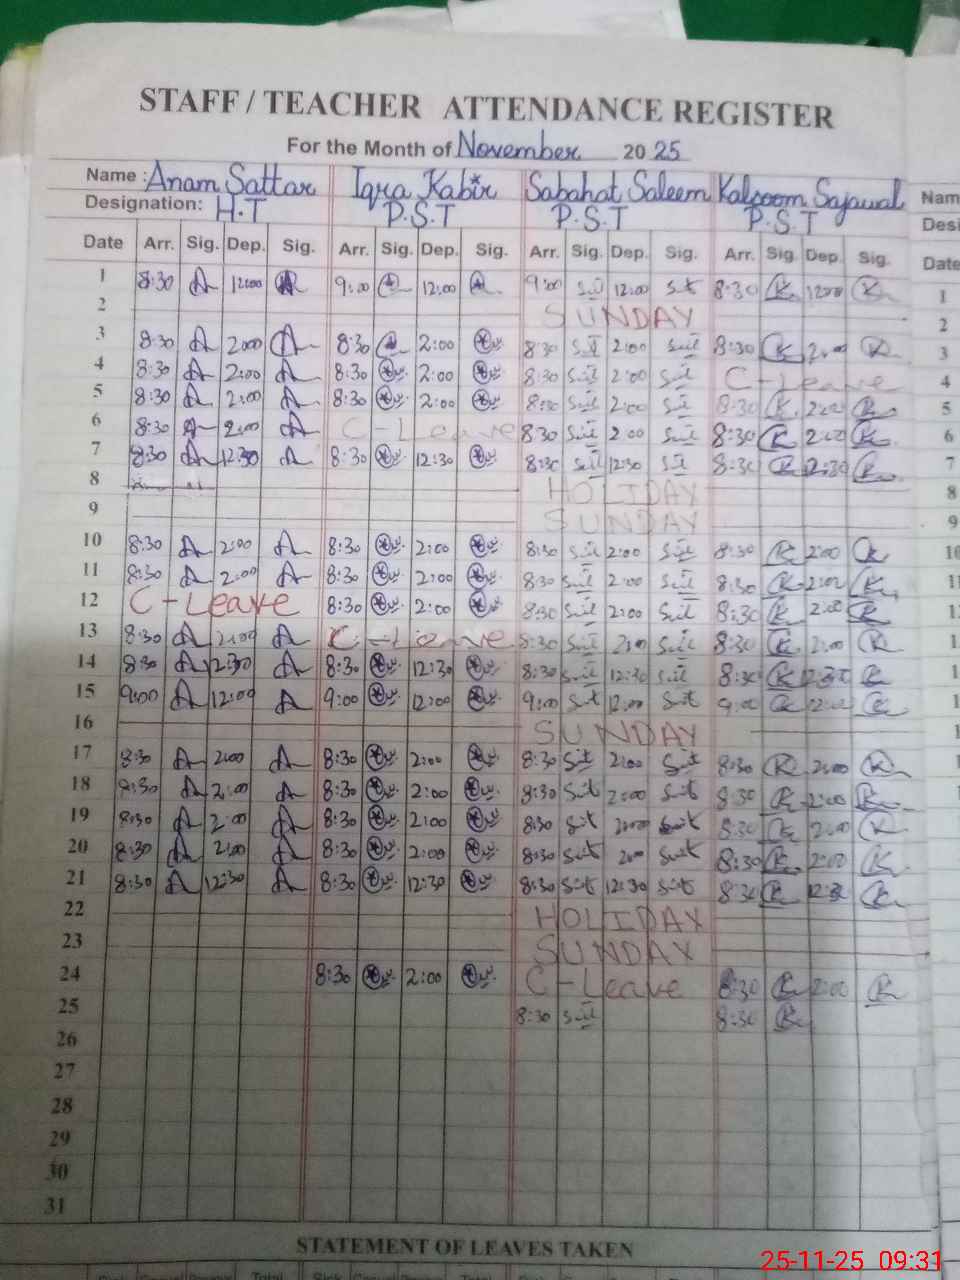 STAFF / TEACHER ATTENDANCE REGISTER
For the Month of November 2025
Name : Anam Sattar Iqra Kabir Sabahat Saleem Kalsoom Sajawal Nam
Designation: H.T P.S.T P.S.T P.S.T Desi
Date Arr. Sig. Dep. Sig. Arr. Sig. Dep. Sig. Arr. Sig. Dep. Sig. Arr. Sig. Dep. Sig. Date
1 8:30 A 12:00 A 9:00 12:00 9:00 12:00 8:30 K 12:00 K 1
2 SUNDAY 2
3 8:30 A 2:00 A 8:30 2:00 8:30 2:00 8:30 K 2:00 K 3
4 8:30 A 2:00 A 8:30 2:00 8:30 2:00 C-Leave 4
5 8:30 A 2:00 A 8:30 2:00 8:30 2:00 8:30 K 2:00 K 5
6 8:30 A 2:00 A C-Leave 8:30 2:00 8:30 K 2:00 K 6
7 8:30 A 12:30 A 8:30 12:30 8:30 12:30 8:30 K 12:30 K 7
8 HOLIDAY 8
9 SUNDAY 9
10 8:30 A 2:00 A 8:30 2:00 8:30 2:00 8:30 K 2:00 K 10
11 8:30 A 2:00 A 8:30 2:00 8:30 2:00 8:30 K 2:00 K 11
12 C-Leave 8:30 2:00 8:30 2:00 8:30 K 2:00 K
13 8:30 A 2:00 A C-Leave 8:30 2:00 8:30 K 2:00 K
14 8:30 A 12:30 A 8:30 12:30 8:30 12:30 8:30 K 12:30 K
15 9:00 A 12:00 A 9:00 12:00 9:00 12:00 9:00 K 12:00 K
16 SUNDAY
17 8:30 A 2:00 A 8:30 2:00 8:30 2:00 8:30 K 2:00 K
18 8:30 A 2:00 A 8:30 2:00 8:30 2:00 8:30 K 2:00 K
19 8:30 A 2:00 A 8:30 2:00 8:30 2:00 8:30 K 2:00 K
20 8:30 A 2:00 A 8:30 2:00 8:30 2:00 8:30 K 2:00 K
21 8:30 A 12:30 A 8:30 12:30 8:30 12:30 8:30 K 12:30 K
22 HOLIDAY
23 SUNDAY
24 8:30 2:00 C-Leave 8:30 K 2:00 K
25 8:30 8:30 K
26
27
28
29
30
31
STATEMENT OF LEAVES TAKEN
25-11-25 09:31